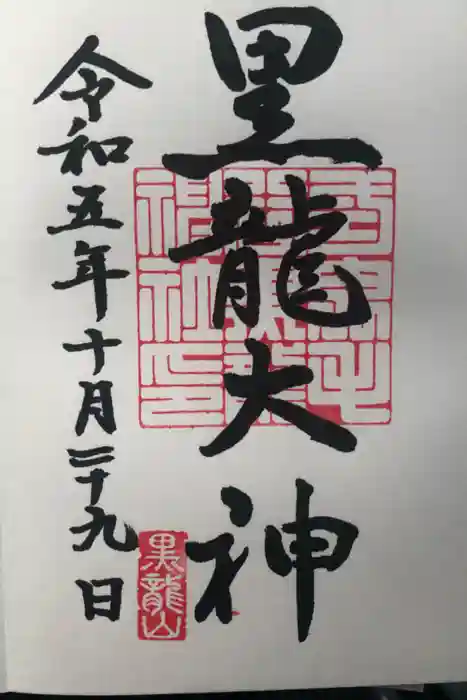 黒龍大神
神社印
令和五年十月二十九日
黒龍山